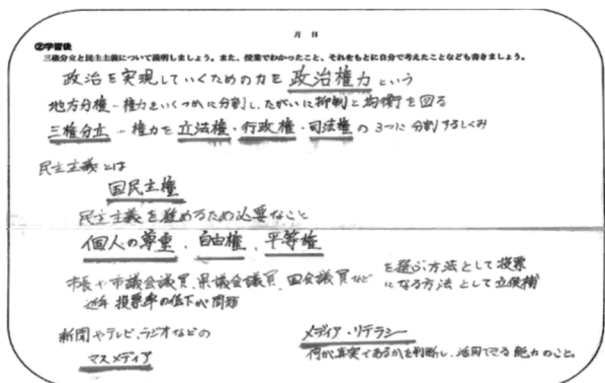 月 日
②学習後
三権分立と民主主義について説明しましょう。また、授業でわかったこと、それをもとに自分で考えたことなども書きましょう。
政治を実現していくための力を政治権力という
地方分権…権力をいくつかに分割し、たがいに抑制と均衡を図る
三権分立…権力を立法権・行政権・司法権の3つに分割するしくみ
民主主義とは
国民主権
民主主義を進めるため必要なこと
個人の尊重、自由権、平等権
市長や市議会議員、県議会議員、国会議員など
を選ぶ方法として投票
になる方法として立候補
近年 投票率の低下が問題
新聞やテレビ、ラジオなどの
マスメディア
メディア・リテラシー
何が真実であるかを判断し、活用できる能力のこと。